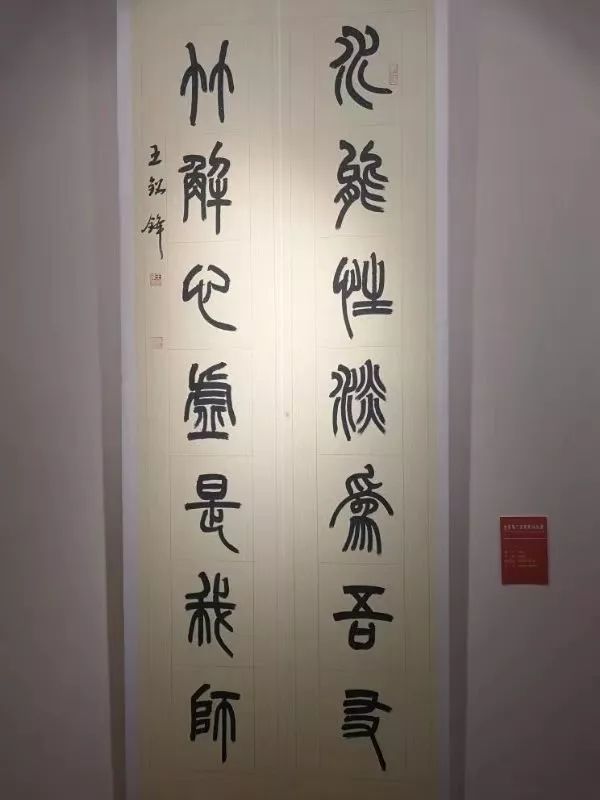 水能性淡為吾友
竹解心虛是我師
王銘鋒